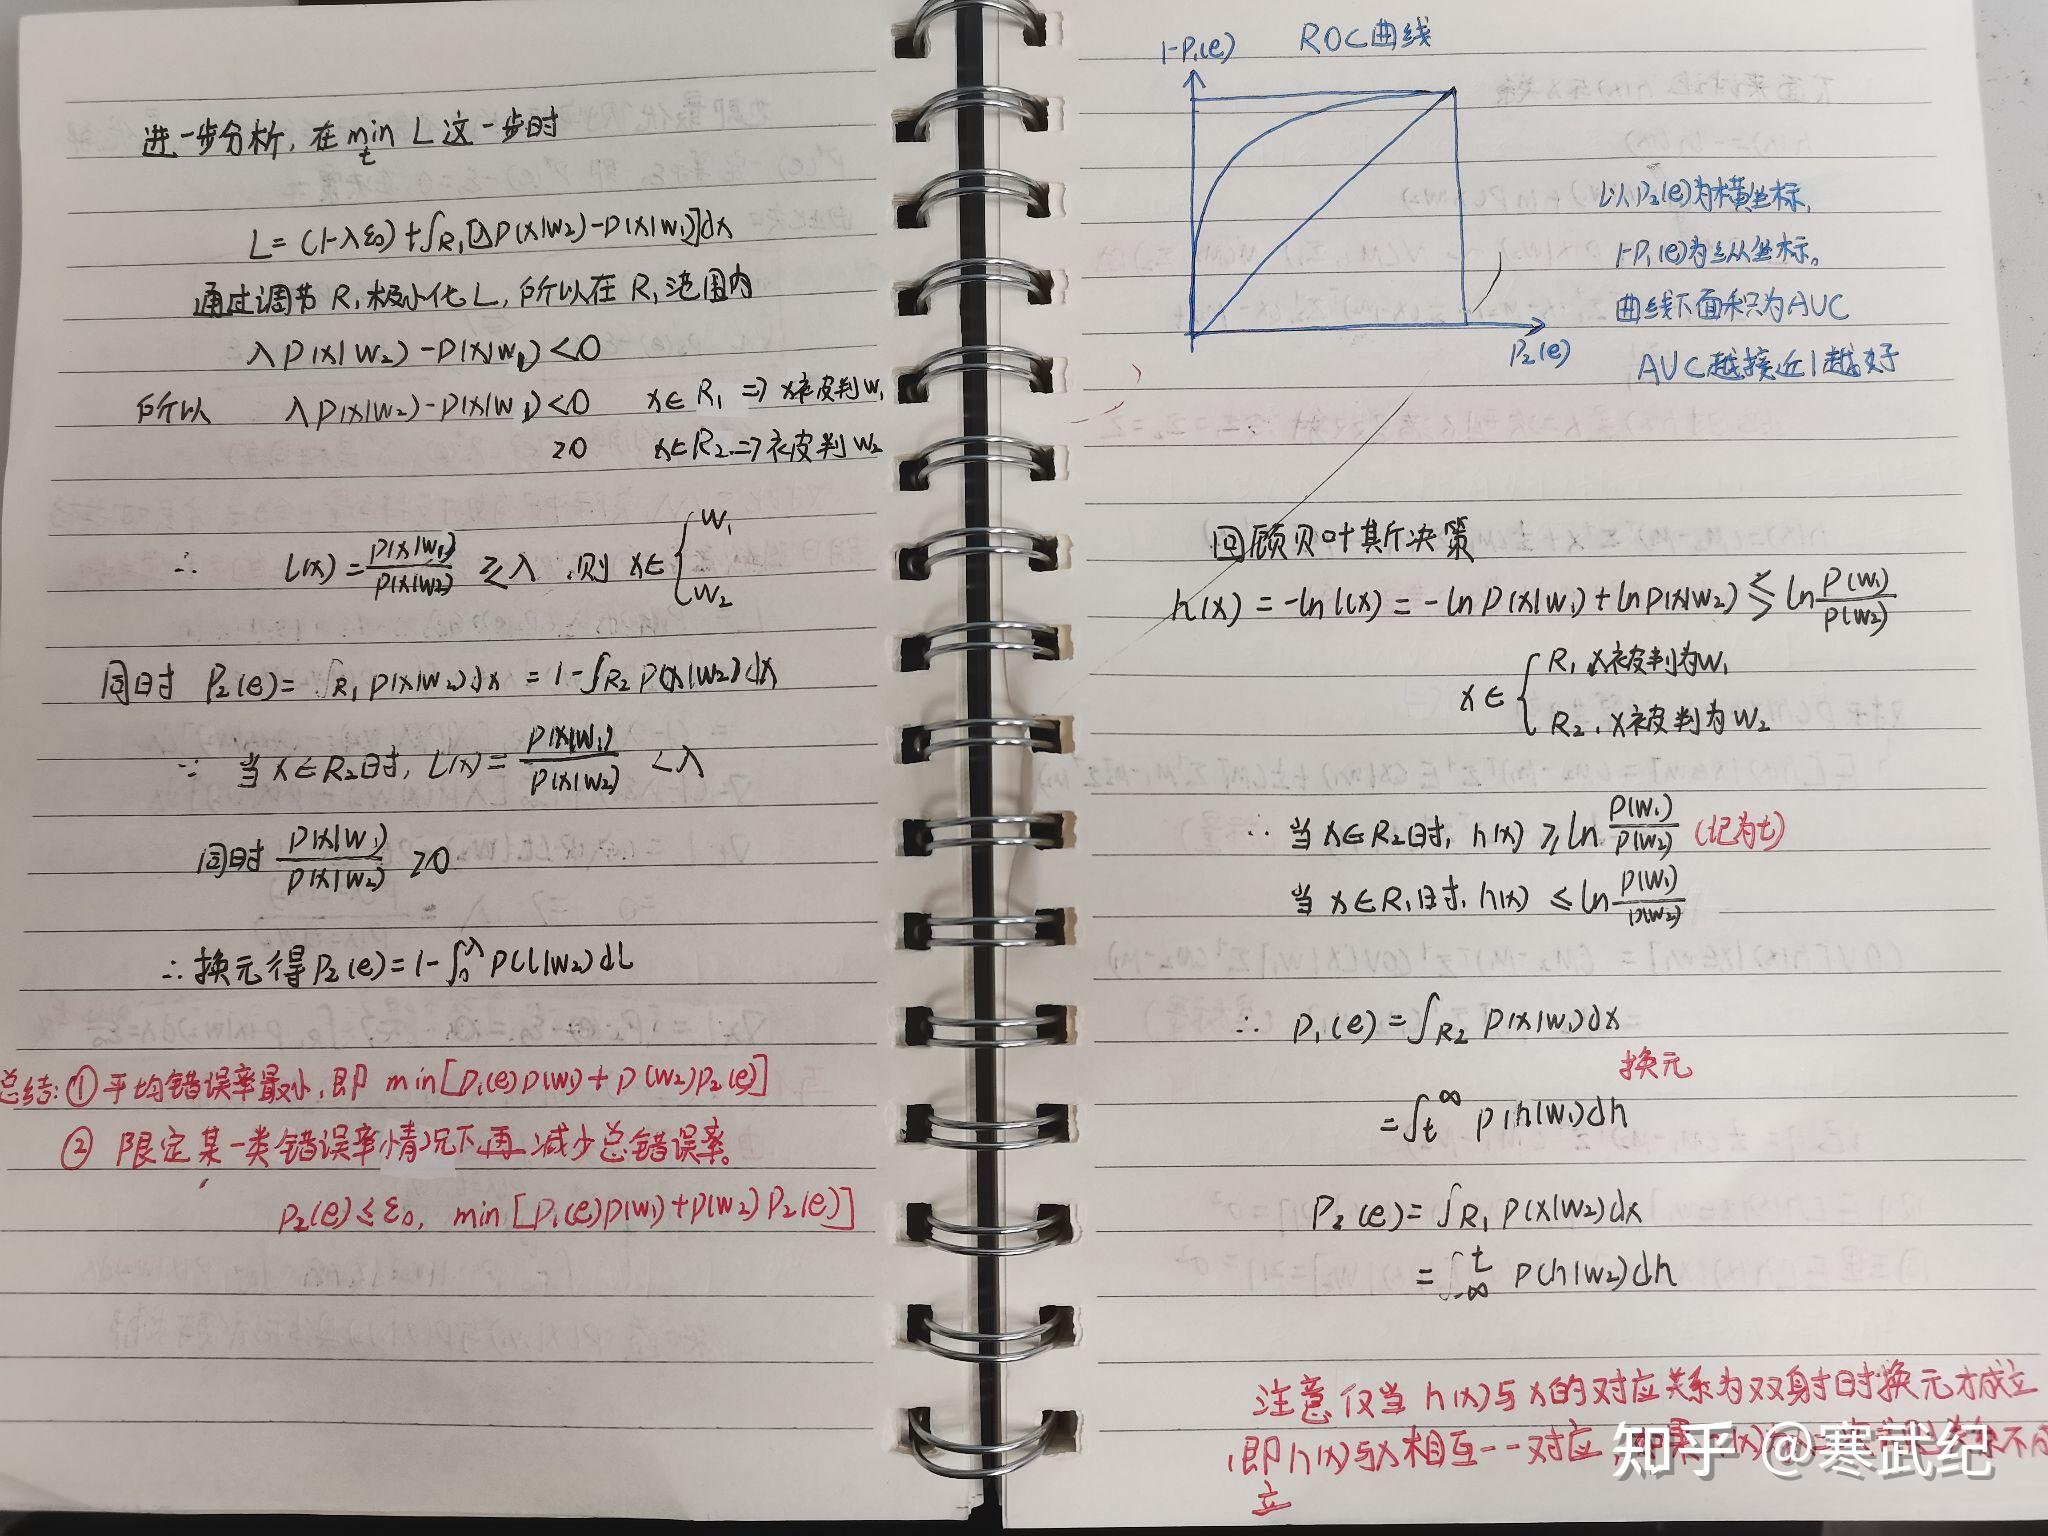 进一步分析,在 min L 这一步时
t
L=(1-λε₀)+∫R₁[λP(x|w₂)-P(x|w₁)]dx
通过调节R₁极小化L,所以在R₁范围内
λP(x|w₂)-P(x|w₁)<0
所以 λP(x|w₂)-P(x|w₁)<0 x∈R₁ ⇒ x被判w₁
>0 x∈R₂ ⇒ 被判w₂
∴ l(x)=P(x|w₁)/P(x|w₂) ≷λ,则 x∈{w₁
w₂
同时 P₂(e)=∫R₁ P(x|w₂)dx = 1-∫R₂ P(x|w₂)dx
∵ 当x∈R₂时,l(x)=P(x|w₁)/P(x|w₂) <λ
同时 P(x|w₁)/P(x|w₂) ≥0
∴换元得P₂(e)=1-∫₀^λ P(l|w₂)dl
总结:①平均错误率最小,即 min[P₁(e)P(w₁)+P(w₂)P₂(e)]
② 限定某一类错误率情况下再减少总错误率。
P₂(e)≤ε₀, min[P₁(e)P(w₁)+P(w₂)P₂(e)]
1-P₁(e) ROC曲线
以P₂(e)为横坐标,
1-P₁(e)为纵坐标。
曲线下面积为AUC
P₂(e)
AUC越接近1越好
回顾贝叶斯决策
h(x)=-ln l(x)=-lnP(x|w₁)+lnP(x|w₂)≶ln P(w₁)/P(w₂)
x∈{R₁,x被判为w₁
R₂,x被判为w₂
∴ 当x∈R₂时,h(x)≥ln P(w₁)/P(w₂) (记为t)
当x∈R₁时,h(x)≤ln P(w₁)/P(w₂)
∴ P₁(e)=∫R₂ P(x|w₁)dx
换元
=∫t^∞ P(h|w₁)dh
P₂(e)=∫R₁ P(x|w₂)dx
=∫-∞^t P(h|w₂)dh
注意 仅当h(x)与x的对应关系为双射时换元才成立
,即h(x)与x相互一一对应,
立
知乎 @寒武纪